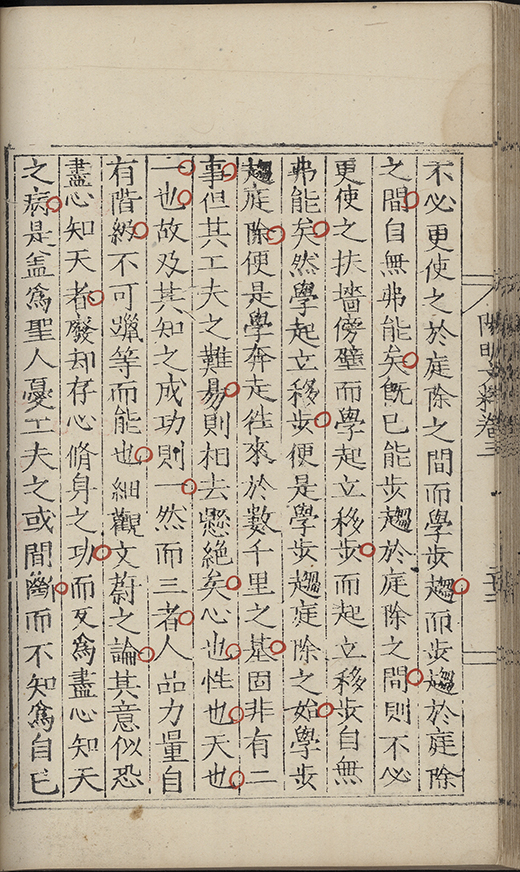 陽明文粹卷三
不必更使之於庭除之間而學步趨而步趨於庭除
之間自無弗能矣旣已能步趨於庭除之間則不必
更使之扶墻傍壁而學起立移步而起立移步自無
弗能矣然學起立移步便是學步趨庭除之始學步
趨庭除便是學奔走徃來於數千里之基固非有二
事但其工夫之難易則相去懸絕矣心也性也天也
一也故及其知之成功則一然而三者人品力量自
有階級不可躐等而能也細觀文蔚之論其意似恐
盡心知天者廢却存心脩身之功而反爲盡心知天
之病是盖爲聖人憂工夫之或間斷而不知爲自已